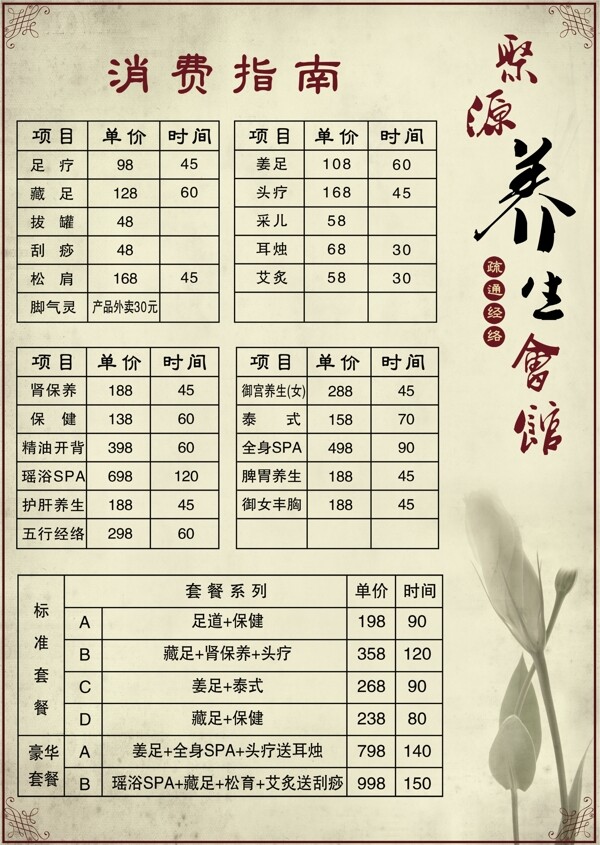 消费指南
聚源养生會馆
疏通经络
项目 单价 时间
足疗 98 45
藏足 128 60
拔罐 48
刮痧 48
松肩 168 45
脚气灵 产品外卖30元
项目 单价 时间
姜足 108 60
头疗 168 45
采儿 58
耳烛 68 30
艾炙 58 30
项目 单价 时间
肾保养 188 45
保健 138 60
精油开背 398 60
瑶浴SPA 698 120
护肝养生 188 45
五行经络 298 60
项目 单价 时间
御宫养生(女) 288 45
泰式 158 70
全身SPA 498 90
脾胃养生 188 45
御女丰胸 188 45
套餐系列 单价 时间
标准套餐
A 足道+保健 198 90
B 藏足+肾保养+头疗 358 120
C 姜足+泰式 268 90
D 藏足+保健 238 80
豪华套餐
A 姜足+全身SPA+头疗送耳烛 798 140
B 瑶浴SPA+藏足+松育+艾炙送刮痧 998 150